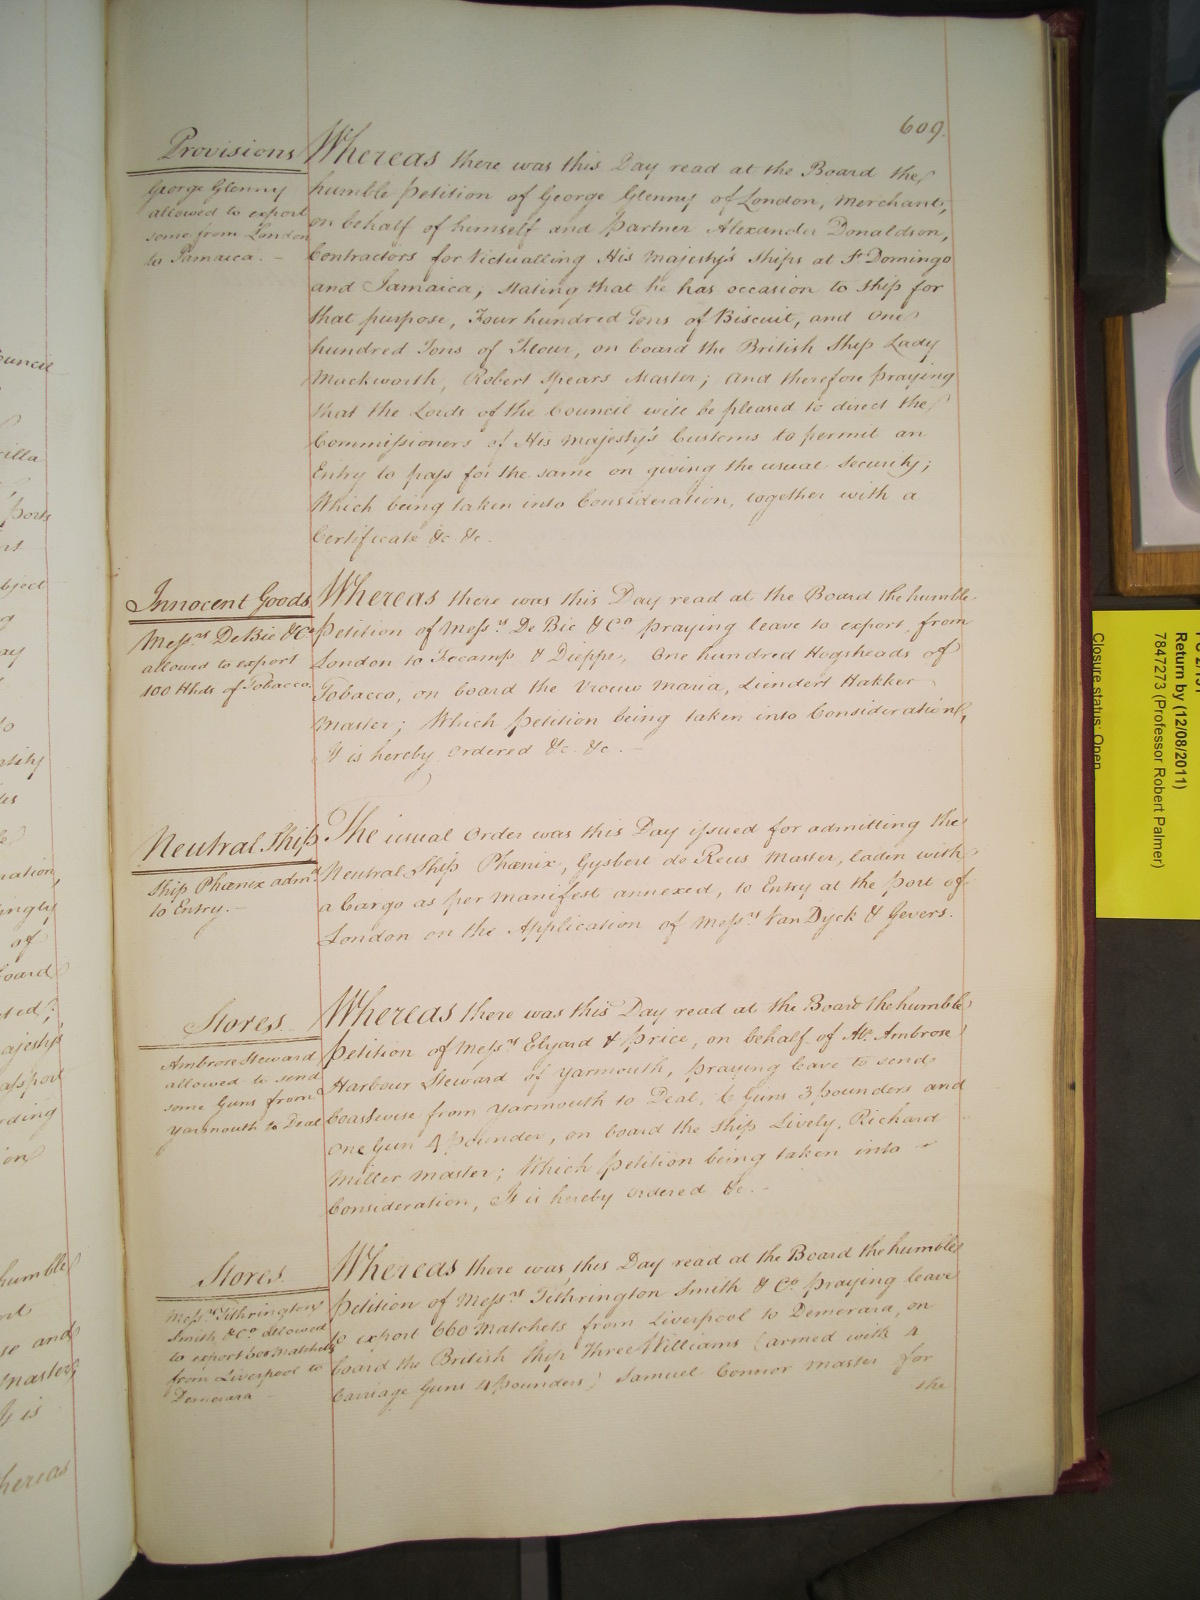 609.
Provisions
George Glenny
allowed to export
some from London
to Jamaica. —
Whereas there was this Day read at the Board the
humble Petition of George Glenny of London, Merchant,
on behalf of himself and Partner Alexander Donaldson,
Contractors for Victualling His Majesty's Ships at St Domingo
and Jamaica, stating that he has occasion to ship for
that purpose, Four hundred Tons of Biscuit, and One
hundred Tons of Flour, on board the British Ship Lady
Mackworth, Robert Spears Master; And therefore praying
that the Lords of the Council will be pleased to direct the
Commissioners of His Majesty's Customs to permit an
Entry to pass for the same on giving the usual Security;
Which being taken into Consideration, together with a
Certificate &c. &c.
Innocent Goods
Messrs De Bie & Co
allowed to export
100 Hhds of Tobacco.
Whereas there was this Day read at the Board the humble
Petition of Messrs De Bie & Co praying leave to export, from
London to Fecamp & Dieppe, One hundred Hogsheads of
Tobacco, on board the Vrouw Maria, Liendert Hakker
Master; Which Petition being taken into Consideration,
It is hereby ordered &c. &c. —
Neutral Ship
Ship Phœnix admd
to Entry. —
The usual Order was this Day issued for admitting the
Neutral Ship Phœnix, Gysbert de Reus Master, laden with
a Cargo as per Manifest annexed, to Entry at the Port of
London on the Application of Messrs Van Dyck & Gevers.
Stores.
Ambrose Steward
allowed to send
some Guns from
Yarmouth to Deal
Whereas there was this Day read at the Board the humble
Petition of Messrs Elyard & Price, on behalf of Mr. Ambrose
Harbour Steward of Yarmouth, praying leave to send
Coastwise from Yarmouth to Deal, 6 Guns 3 pounders and
One Gun 4 pounder, on board the Ship Lively, Richard
Miller Master; Which Petition being taken into
Consideration, It is hereby ordered &c. —
Stores.
Messrs Tithrington
Smith & Co allowed
to export some Matchets
from Liverpool to
Demerara —
Whereas there was this Day read at the Board the humble
Petition of Messrs Tithrington Smith & Co praying leave
to export 660 Matchets from Liverpool to Demerara, on
board the British Ship Three Williams (armed with 4
Carriage Guns 4 pounders) Samuel Connor Master for
the
Return by (12/08/2011)
7847273 (Professor Robert Palmer)
Closure status: Open